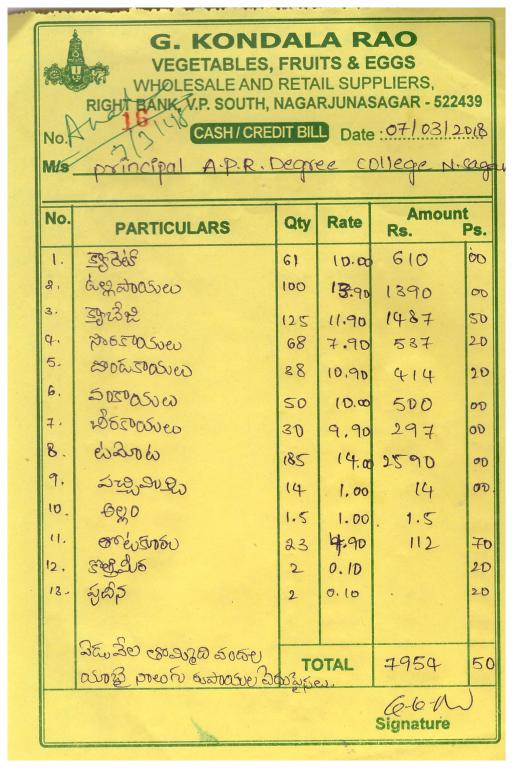 G. KONDALA RAO
VEGETABLES, FRUITS & EGGS
WHOLESALE AND RETAIL SUPPLIERS,
RIGHT BANK, V.P. SOUTH, NAGARJUNASAGAR - 522439
No. 16 CASH / CREDIT BILL Date : 07/03/2018
M/s principal A.P.R. Degree College N. Sagar
No. PARTICULARS Qty Rate Amount
Rs. Ps.
1. క్యారెట్ 61 10.00 610 00
2. ఉల్లిపాయలు 100 13.90 1390 00
3. క్యాబేజి 125 11.90 1487 50
4. సొరకాయలు 68 7.90 537 20
5. దొండకాయలు 38 10.90 414 20
6. వంకాయలు 50 10.00 500 00
7. బీరకాయలు 30 9.90 297 00
8. టమోట 185 14.00 2590 00
9. పచ్చిమిర్చి 14 1.00 14 00
10. అల్లం 1.5 1.00 1.5
11. తోటకూర 23 4.90 112 70
12. కొత్తిమీర 2 0.10 20
13. పుదీన 2 0.10 20
ఏడు వేల తొమ్మిది వందల
యాభై నాలుగు రూపాయల
TOTAL 7954 50
Signature